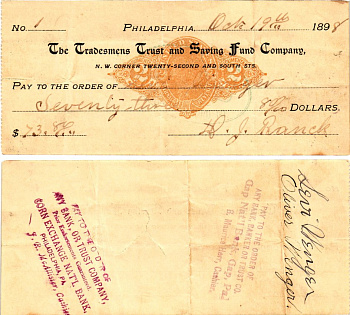 No. 1 Philadelphia, Oct 19th 1898
The Tradesmens Trust and Saving Fund Company,
N. W. CORNER TWENTY-SECOND AND SOUTH STS.
PAY TO THE ORDER OF Levi Wenger
Seventy three 8/100 DOLLARS.
$ 73.8/100 D. J. Ranck
PAY TO THE ORDER OF
ANY BANK OR TRUST COMPANY,
CORN EXCHANGE NAT'L BANK,
PHILADELPHIA, PA.
PAY TO THE ORDER OF
ANY BANK, BANKER OR TRUST CO.
Gap, Pa.
Cashier
Levi Wenger
Oliver Wenger